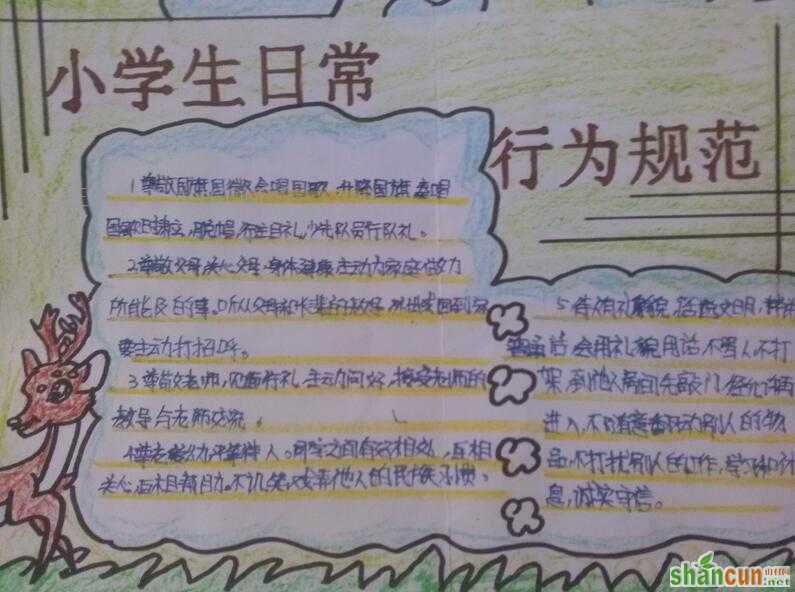 小学生日常
行为规范
1.尊敬国旗国徽会唱国歌,升降国旗奏唱
国歌时肃立,脱帽,行注目礼,少先队员行队礼。
2.尊敬父母关心父母身体健康主动为家庭做力
所能及的事。听从父母和长辈的教导,外出或回到家
要主动打招呼。
3.尊敬老师,见面行礼,主动问好,接受老师的
教导与老师交流。
4.尊老爱幼平等待人。同学之间友好相处,互相
关心互相帮助。不讥笑戏弄他人的民族习惯,
5.待人有礼貌,话文明,讲
普通话会用礼貌用语不骂人不打
架,到他人房间先敲门经允许再
进入,不随意翻动别人的物
品,不打扰别人的工作,学习和休
息,诚实守信。
shancun
山村网
.net